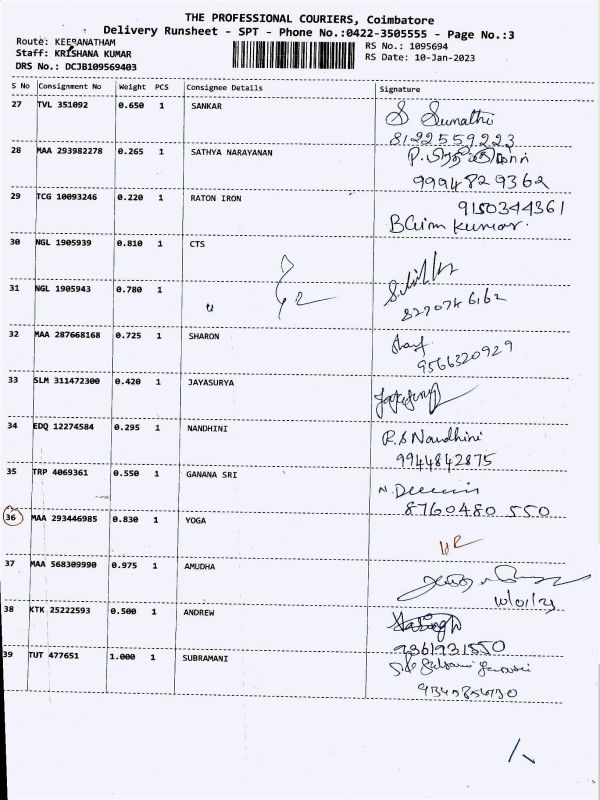 THE PROFESSIONAL COURIERS, Coimbatore
Delivery Runsheet - SPT - Phone No.:0422-3505555 - Page No.:3
Route: KEERANATHAM
RS No.: 1095694
Staff: KRISHANA KUMAR
RS Date: 10-Jan-2023
DRS No.: DCJB109569403
S No Consignment No Weight PCS Consignee Details Signature
27 TVL 351092 0.650 1 SANKAR S Sumathi
8122559223
28 MAA 293982278 0.265 1 SATHYA NARAYANAN P.
9994829362
29 TCG 10093246 0.220 1 RATON IRON 9150344361
Kumar.
30 NGL 1905939 0.810 1 CTS
31 NGL 1905943 0.780 1 8270746162
32 MAA 287668168 0.725 1 SHARON
9566320929
33 SLM 311472300 0.420 1 JAYASURYA
34 EDQ 12274584 0.295 1 NANDHINI R.S Nandhini
9944842875
35 TRP 4069361 0.550 1 GANANA SRI N.
8760480 550
36 MAA 293446985 0.830 1 YOGA
37 MAA 568309990 0.975 1 AMUDHA
10/01/23
38 KTK 25222593 0.500 1 ANDREW
9361931550
39 TUT 477651 1.000 1 SUBRAMANI